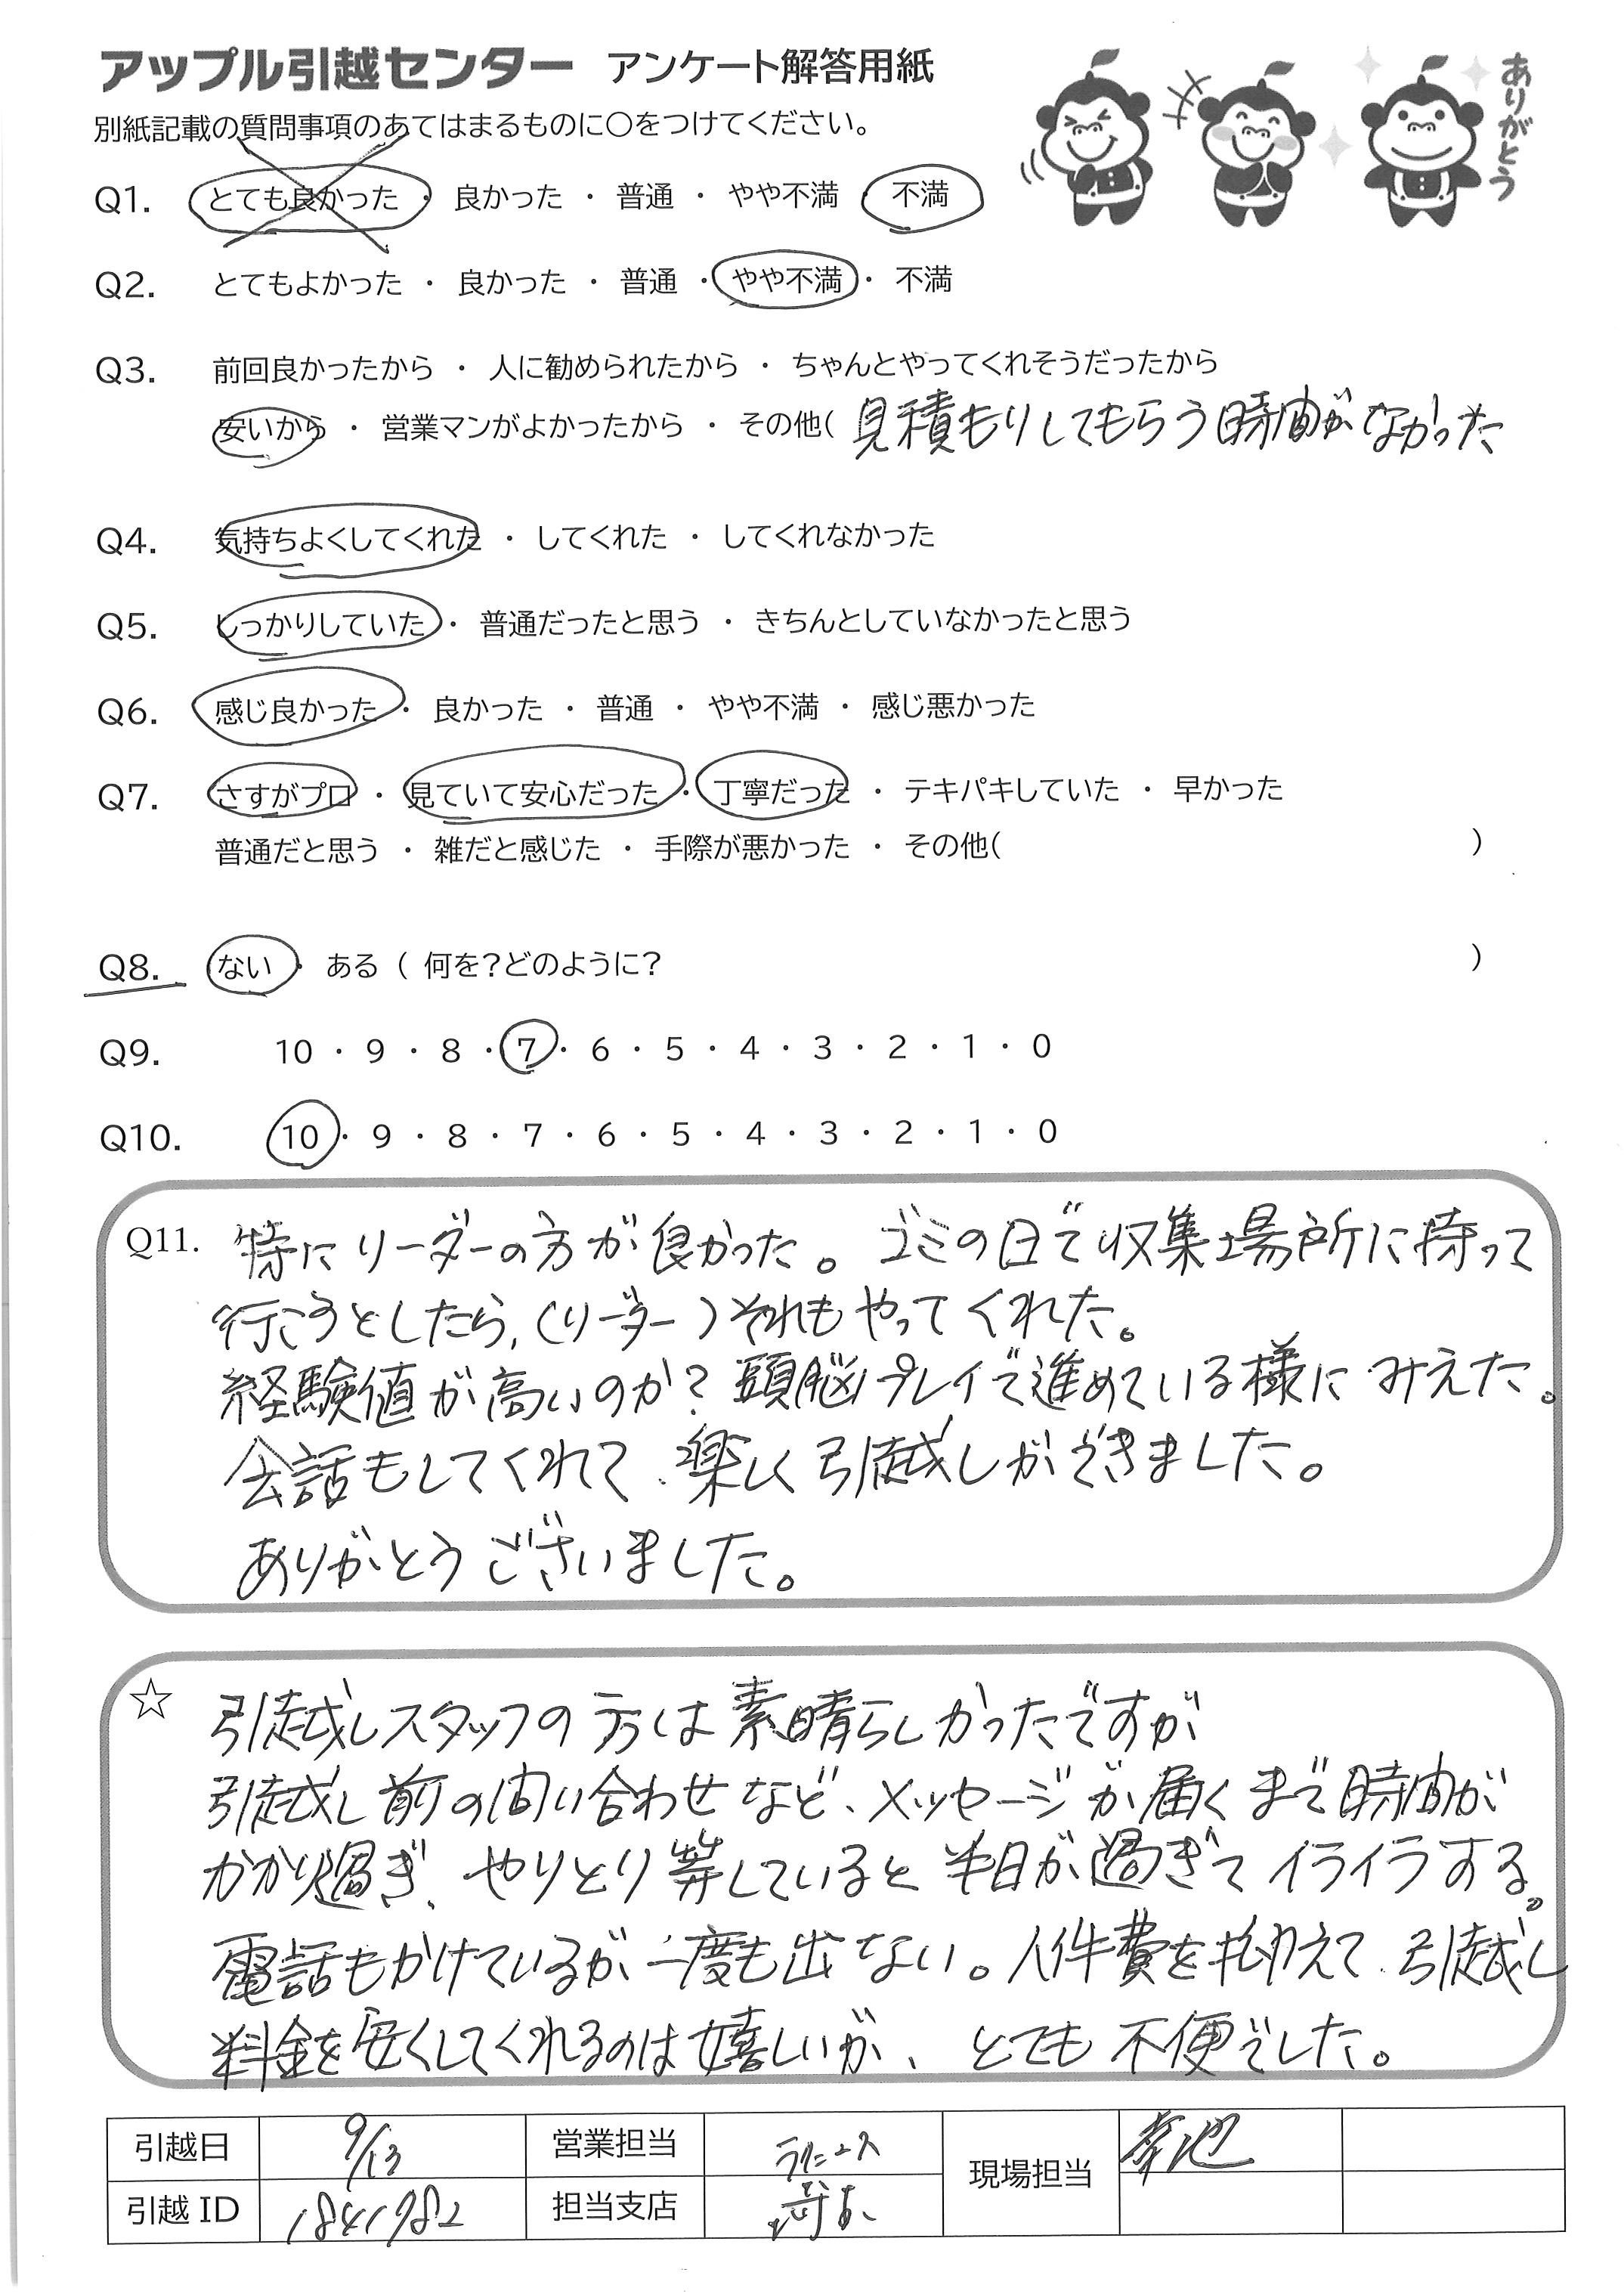 アップル引越センター アンケート解答用紙
ありがとう
別紙記載の質問事項のあてはまるものに○をつけてください。
Q1. とても良かった ・ 良かった ・ 普通 ・ やや不満 ・ 不満
Q2. とてもよかった ・ 良かった ・ 普通 ・ やや不満 ・ 不満
Q3. 前回良かったから ・ 人に勧められたから ・ ちゃんとやってくれそうだったから
安いから ・ 営業マンがよかったから ・ その他( 見積もりしてもらう時間がなかった
Q4. 気持ちよくしてくれた ・ してくれた ・ してくれなかった
Q5. しっかりしていた ・ 普通だったと思う ・ きちんとしていなかったと思う
Q6. 感じ良かった ・ 良かった ・ 普通 ・ やや不満 ・ 感じ悪かった
Q7. さすがプロ ・ 見ていて安心だった ・ 丁寧だった ・ テキパキしていた ・ 早かった
普通だと思う ・ 雑だと感じた ・ 手際が悪かった ・ その他( )
Q8. ない ・ ある ( 何を?どのように? )
Q9. 10 ・ 9 ・ 8 ・ 7 ・ 6 ・ 5 ・ 4 ・ 3 ・ 2 ・ 1 ・ 0
Q10. 10 ・ 9 ・ 8 ・ 7 ・ 6 ・ 5 ・ 4 ・ 3 ・ 2 ・ 1 ・ 0
Q11. 特にリーダーの方が良かった。ゴミの日で収集場所に持って
行こうとしたら、(リーダー)それもやってくれた。
経験値が高いのか?頭脳プレイで進めている様にみえた。
会話もしてくれて、楽しく引越しができました。
ありがとうございました。
☆ 引越しスタッフの方は素晴らしかったですが
引越し前の問い合わせなど、メッセージが届くまで時間が
かかり過ぎ、やりとり等していると半日が過ぎてイライラする。
電話もかけているが、一度も出ない。人件費を抑えて、引越し
料金を安くしてくれるのは嬉しいが、とても不便でした。
引越日 9/13 営業担当 現場担当 菊池
引越 ID 1841982 担当支店